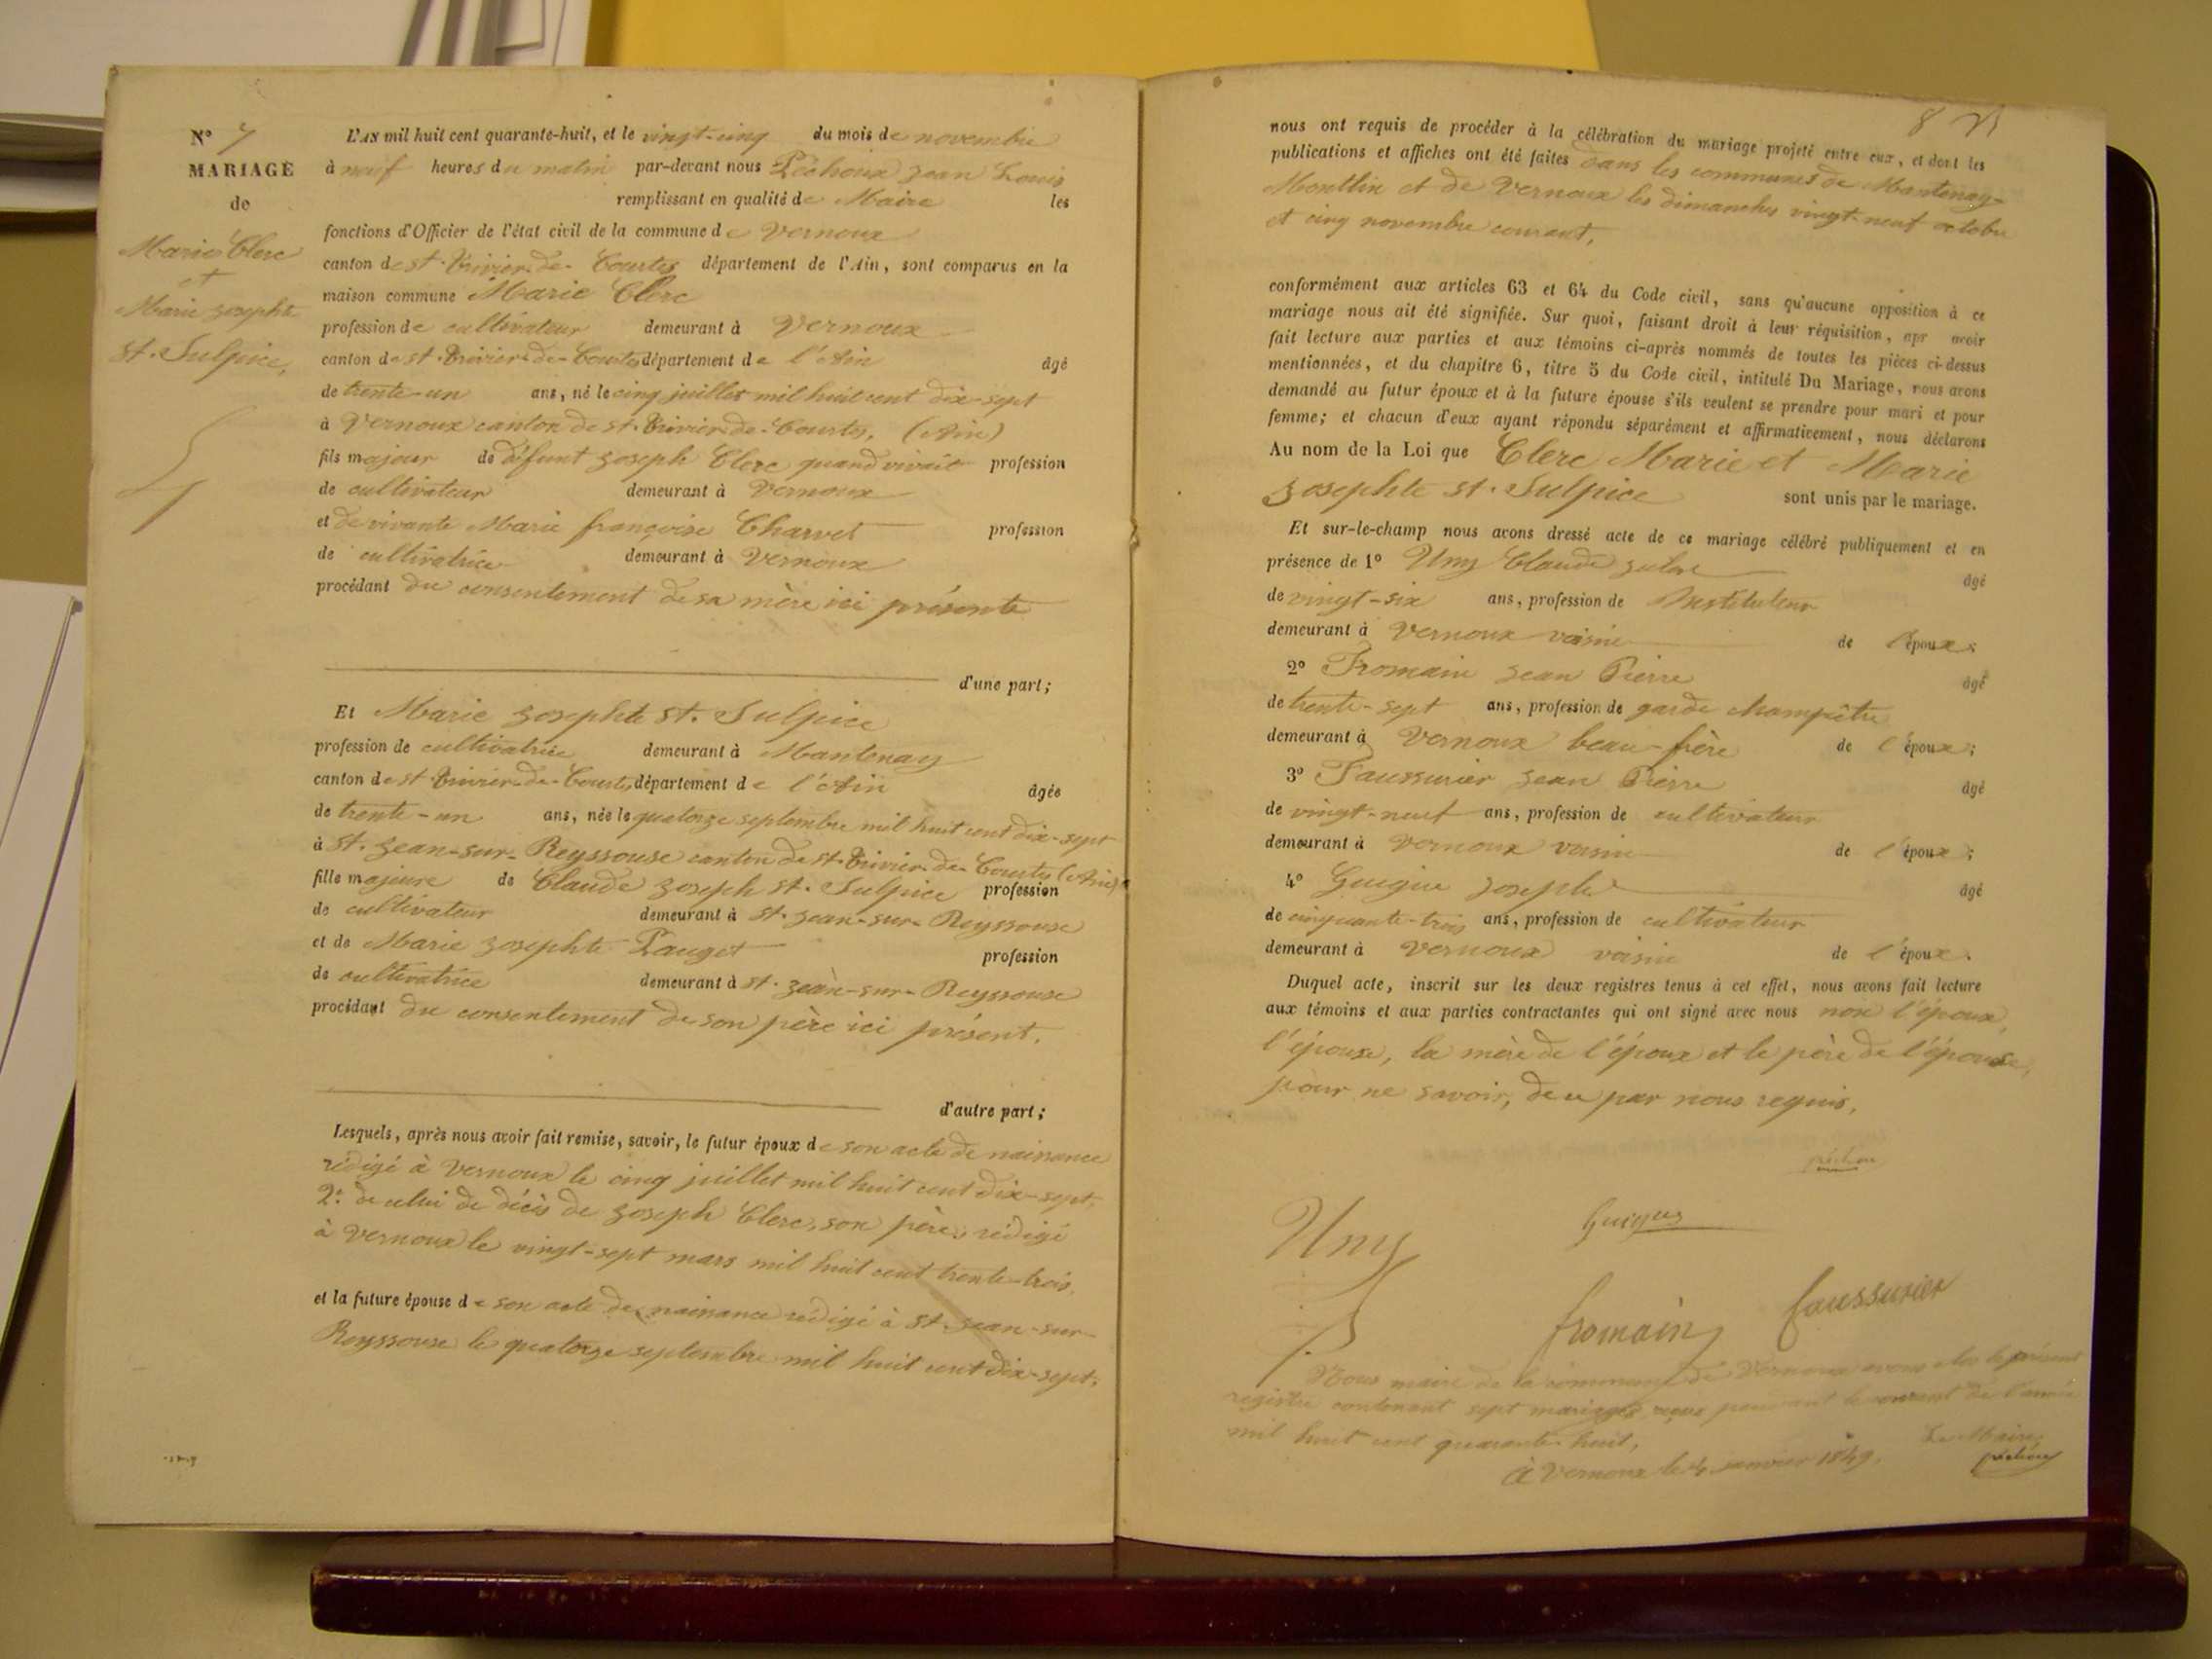 N° 7
MARIAGE
de
Marie Clerc
et
Marie Josephte
St. Sulpice,
L'AN mil huit cent quarante-huit, et le vingt-cinq du mois de novembre
à neuf heures du matin par-devant nous Péchoux Jean Louis
remplissant en qualité de Maire les
fonctions d'Officier de l'état civil de la commune de Vernoux
canton de St. Trivier-de-Courtes département de l'Ain, sont comparus en la
maison commune Marie Clerc
profession de cultivateur demeurant à Vernoux
canton de St. Trivier-de-Courtes département de l'Ain âgé
de trente-un ans, né le cinq juillet mil huit cent dix-sept
à Vernoux canton de St. Trivier-de-Courtes, (Ain)
fils majeur de défunt Joseph Clerc quand vivait profession
de cultivateur demeurant à Vernoux
et de vivante Marie françoise Charvet profession
de cultivatrice demeurant à Vernoux
procédant du consentement de sa mère ici présente
d'une part;
Et Marie Josephte St. Sulpice
profession de cultivatrice demeurant à Mantenay
canton de St. Trivier-de-Courtes, département de l'Ain âgée
de trente-un ans, née le quatorze septembre mil huit cent dix-sept
à St. Jean-sur-Reyssouse canton de St. Trivier-de-Courtes (Ain)
fille majeure de Claude Joseph St. Sulpice profession
de cultivateur demeurant à St. Jean-sur-Reyssouse
et de Marie Josephte Pauget profession
de cultivatrice demeurant à St. Jean-sur-Reyssouse
procédant du consentement de son père ici présent.
d'autre part;
Lesquels, après nous avoir fait remise, savoir, le futur époux de son acte de naissance
rédigé à Vernoux le cinq juillet mil huit cent dix-sept,
2° de celui de décès de Joseph Clerc, son père, rédigé
à Vernoux le vingt-sept mars mil huit cent trente-trois,
et la future épouse de son acte de naissance rédigé à St. Jean-sur-
Reyssouse le quatorze septembre mil huit cent dix-sept,
8
nous ont requis de procéder à la célébration du mariage projeté entre eux, et dont les
publications et affiches ont été faites dans les communes de Mantenay-
Montlin et de Vernoux les dimanches vingt-neuf octobre
et cinq novembre courant,
conformément aux articles 63 et 64 du Code civil, sans qu'aucune opposition à ce
mariage nous ait été signifiée. Sur quoi, faisant droit à leur réquisition, apr avoir
fait lecture aux parties et aux témoins ci-après nommés de toutes les pièces ci-dessus
mentionnées, et du chapitre 6, titre 5 du Code civil, intitulé Du Mariage, nous avons
demandé au futur époux et à la future épouse s'ils veulent se prendre pour mari et pour
femme; et chacun d'eux ayant répondu séparément et affirmativement, nous déclarons
Au nom de la Loi que Clerc Marie et Marie
Josephte St. Sulpice sont unis par le mariage.
Et sur-le-champ nous avons dressé acte de ce mariage célébré publiquement et en
présence de 1° Uny Claude âgé
de vingt-six ans, profession de Instituteur
demeurant à Vernoux voisin de l'époux;
2° Fromain Jean Pierre âgé
de trente-sept ans, profession de garde champêtre
demeurant à Vernoux beau-frère de l'époux;
3° Faussurier Jean Pierre âgé
de vingt-neuf ans, profession de cultivateur
demeurant à Vernoux voisin de l'époux;
4° Guigue Joseph âgé
de cinquante-trois ans, profession de cultivateur
demeurant à Vernoux voisin de l'époux.
Duquel acte, inscrit sur les deux registres tenus à cet effet, nous avons fait lecture
aux témoins et aux parties contractantes qui ont signé avec nous non l'époux,
l'épouse, la mère de l'époux et le père de l'épouse,
pour ne savoir, de ce par nous requis,
péchoux
Uny
Guigues
fromain
faussurier
Nous maire de la commune de Vernoux avons clos le présent
registre contenant sept mariages reçus pendant le courant de l'année
mil huit cent quarante-huit,
à Vernoux le 4 janvier 1849.
Le Maire,
péchoux